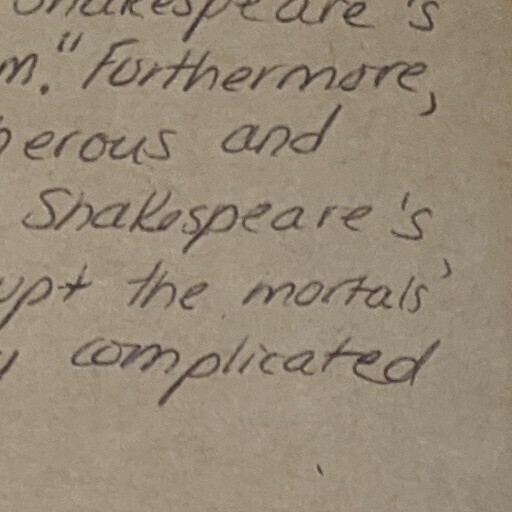 Shakespeare's
m." Furthermore,
erous and
Shakespeare's
upt the mortals'
y complicated